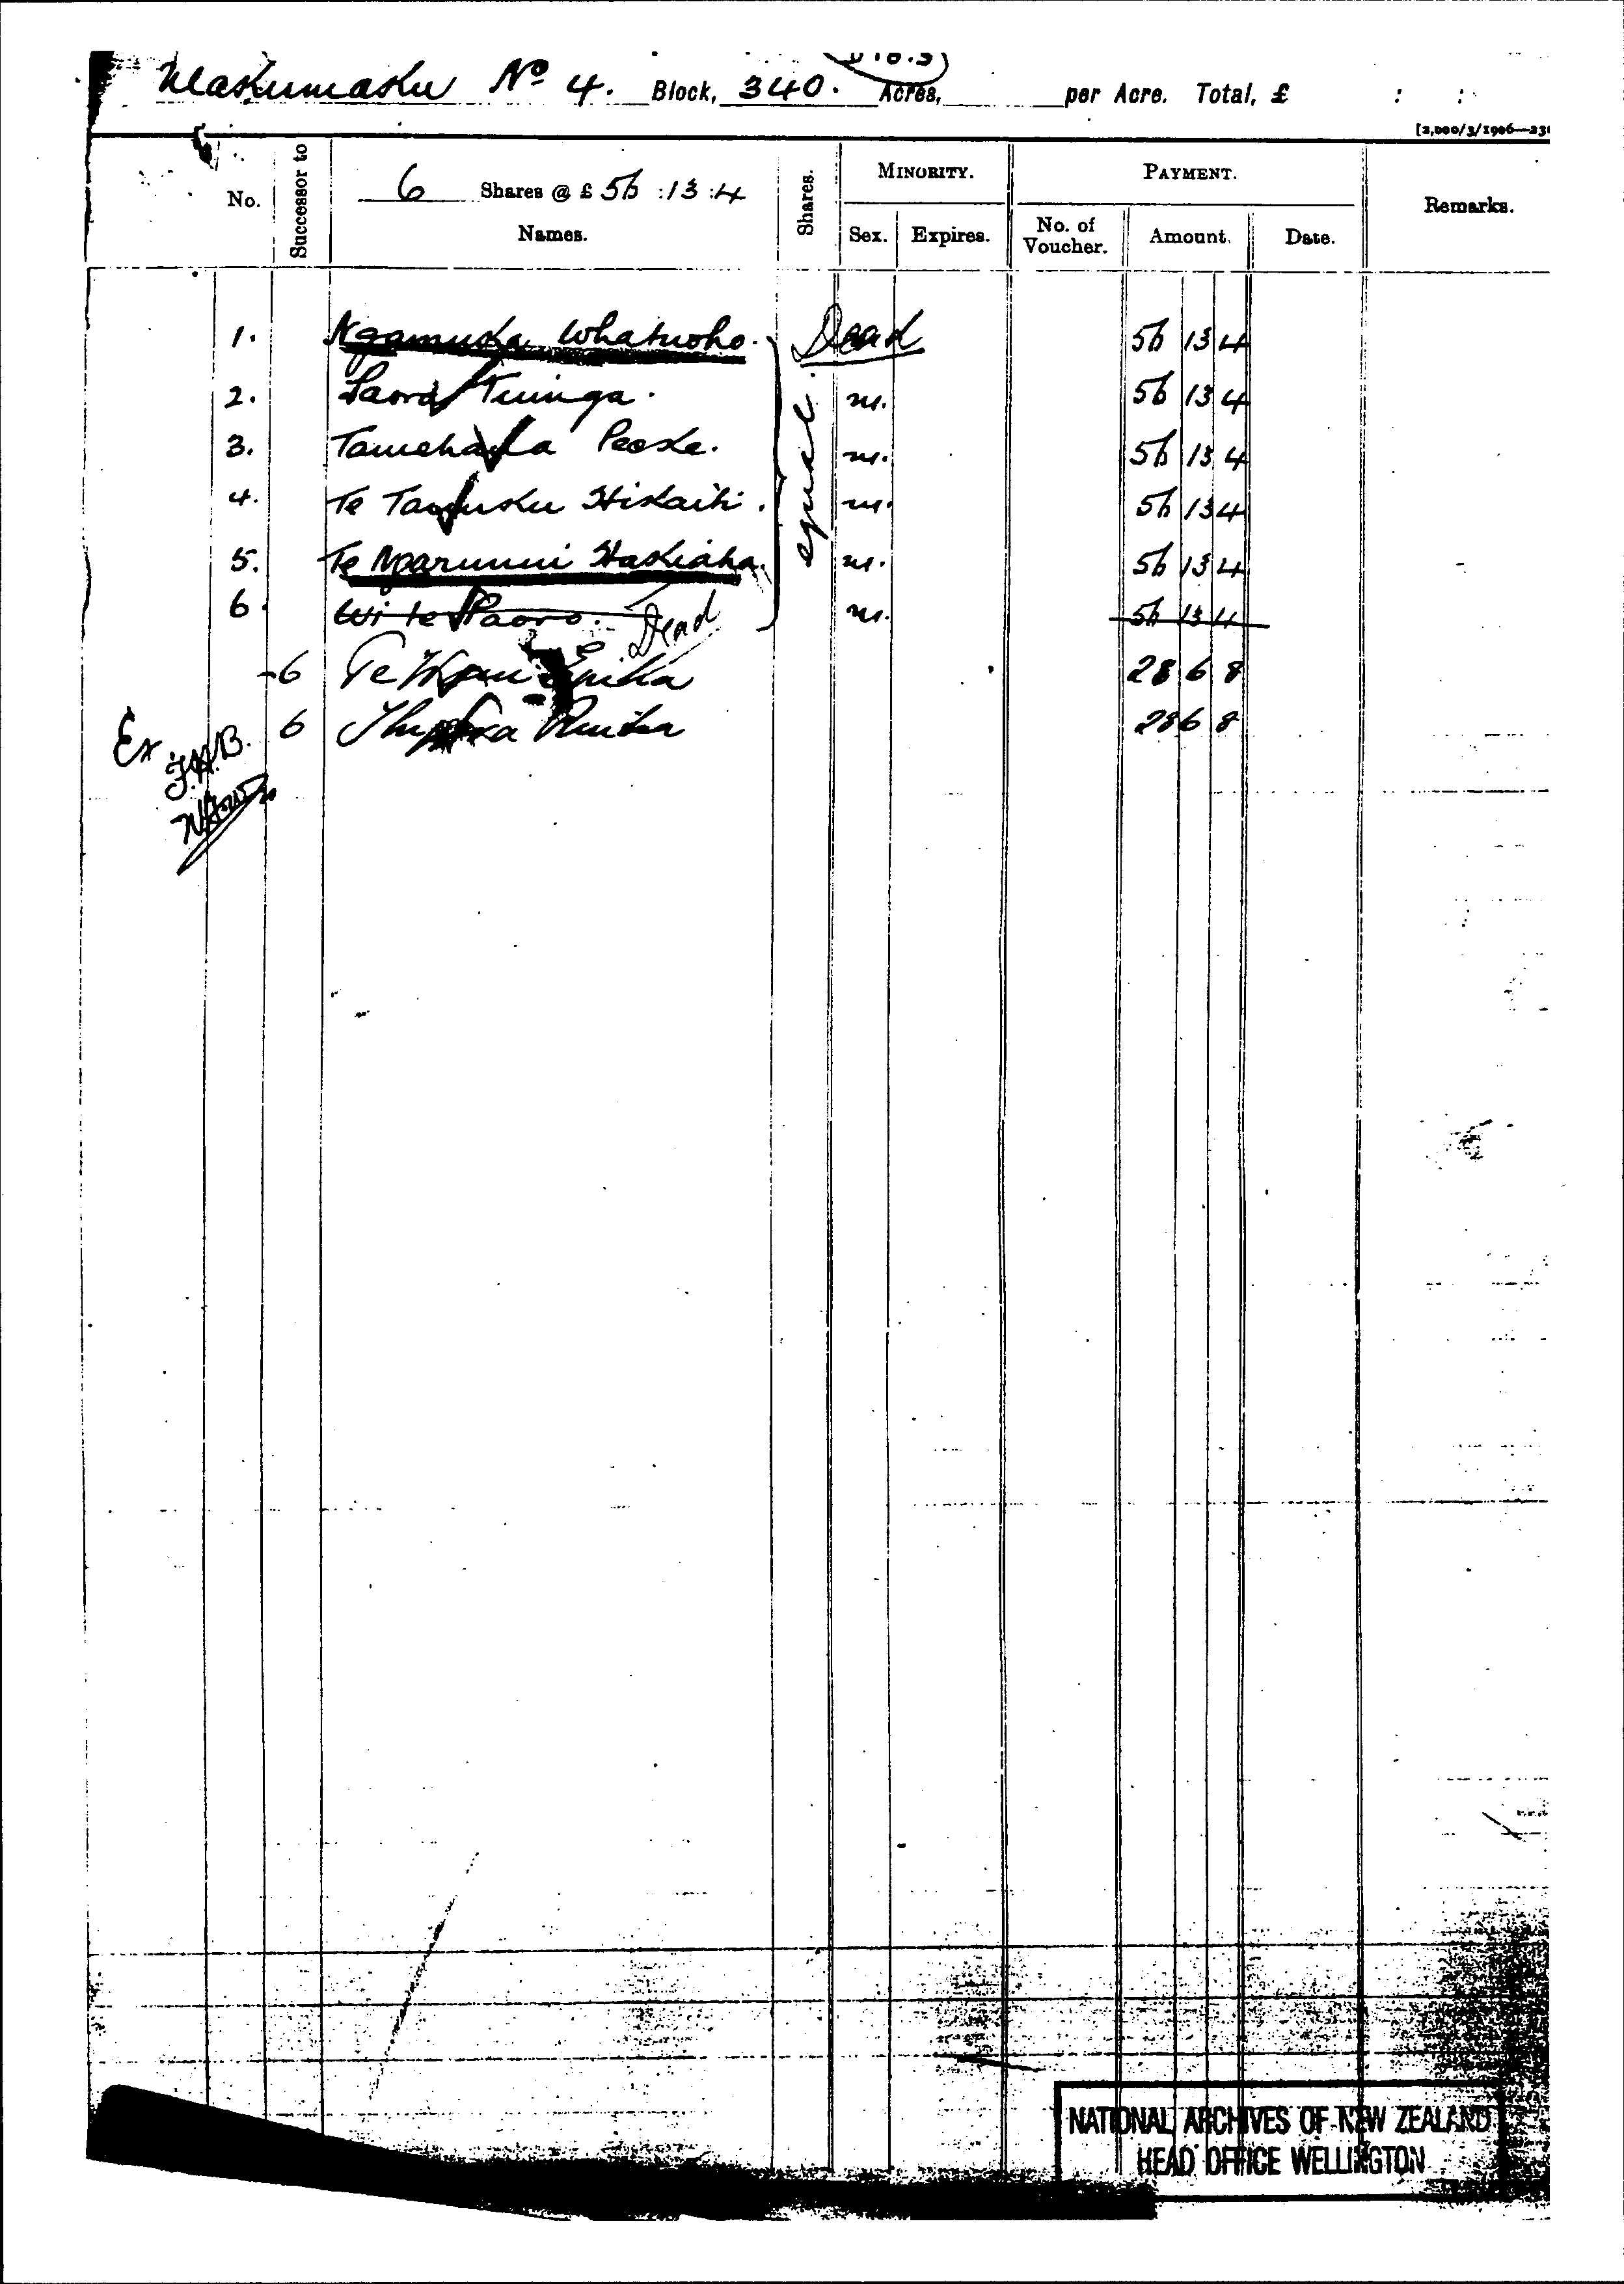 Makumaku No 4. Block, 340. Acres, per Acre. Total, £ : :
[2,000/3/1906—23
No. Successor to 6 Shares @ £ 56 : 13 : 4 Names. Shares. MINORITY. PAYMENT. Remarks.
Sex. Expires. No. of Voucher. Amount. Date.
1. Ngamuka Whatuoho. Dead 56 13 4
2. Paora Tuinga. m. 56 13 4
equal.
3. Tamehana Peeke. m. 56 13 4
4. Te Hikaiti. m. 56 13 4
5. Te Ngarumi Hakiaha. m. 56 13 4
6. Wi te Paoro. Dead m. 56 13 4
6 Te 28 6 8
Ex J.H.B. 6 28 6 8
NATIONAL ARCHIVES OF NEW ZEALAND
HEAD OFFICE WELLINGTON